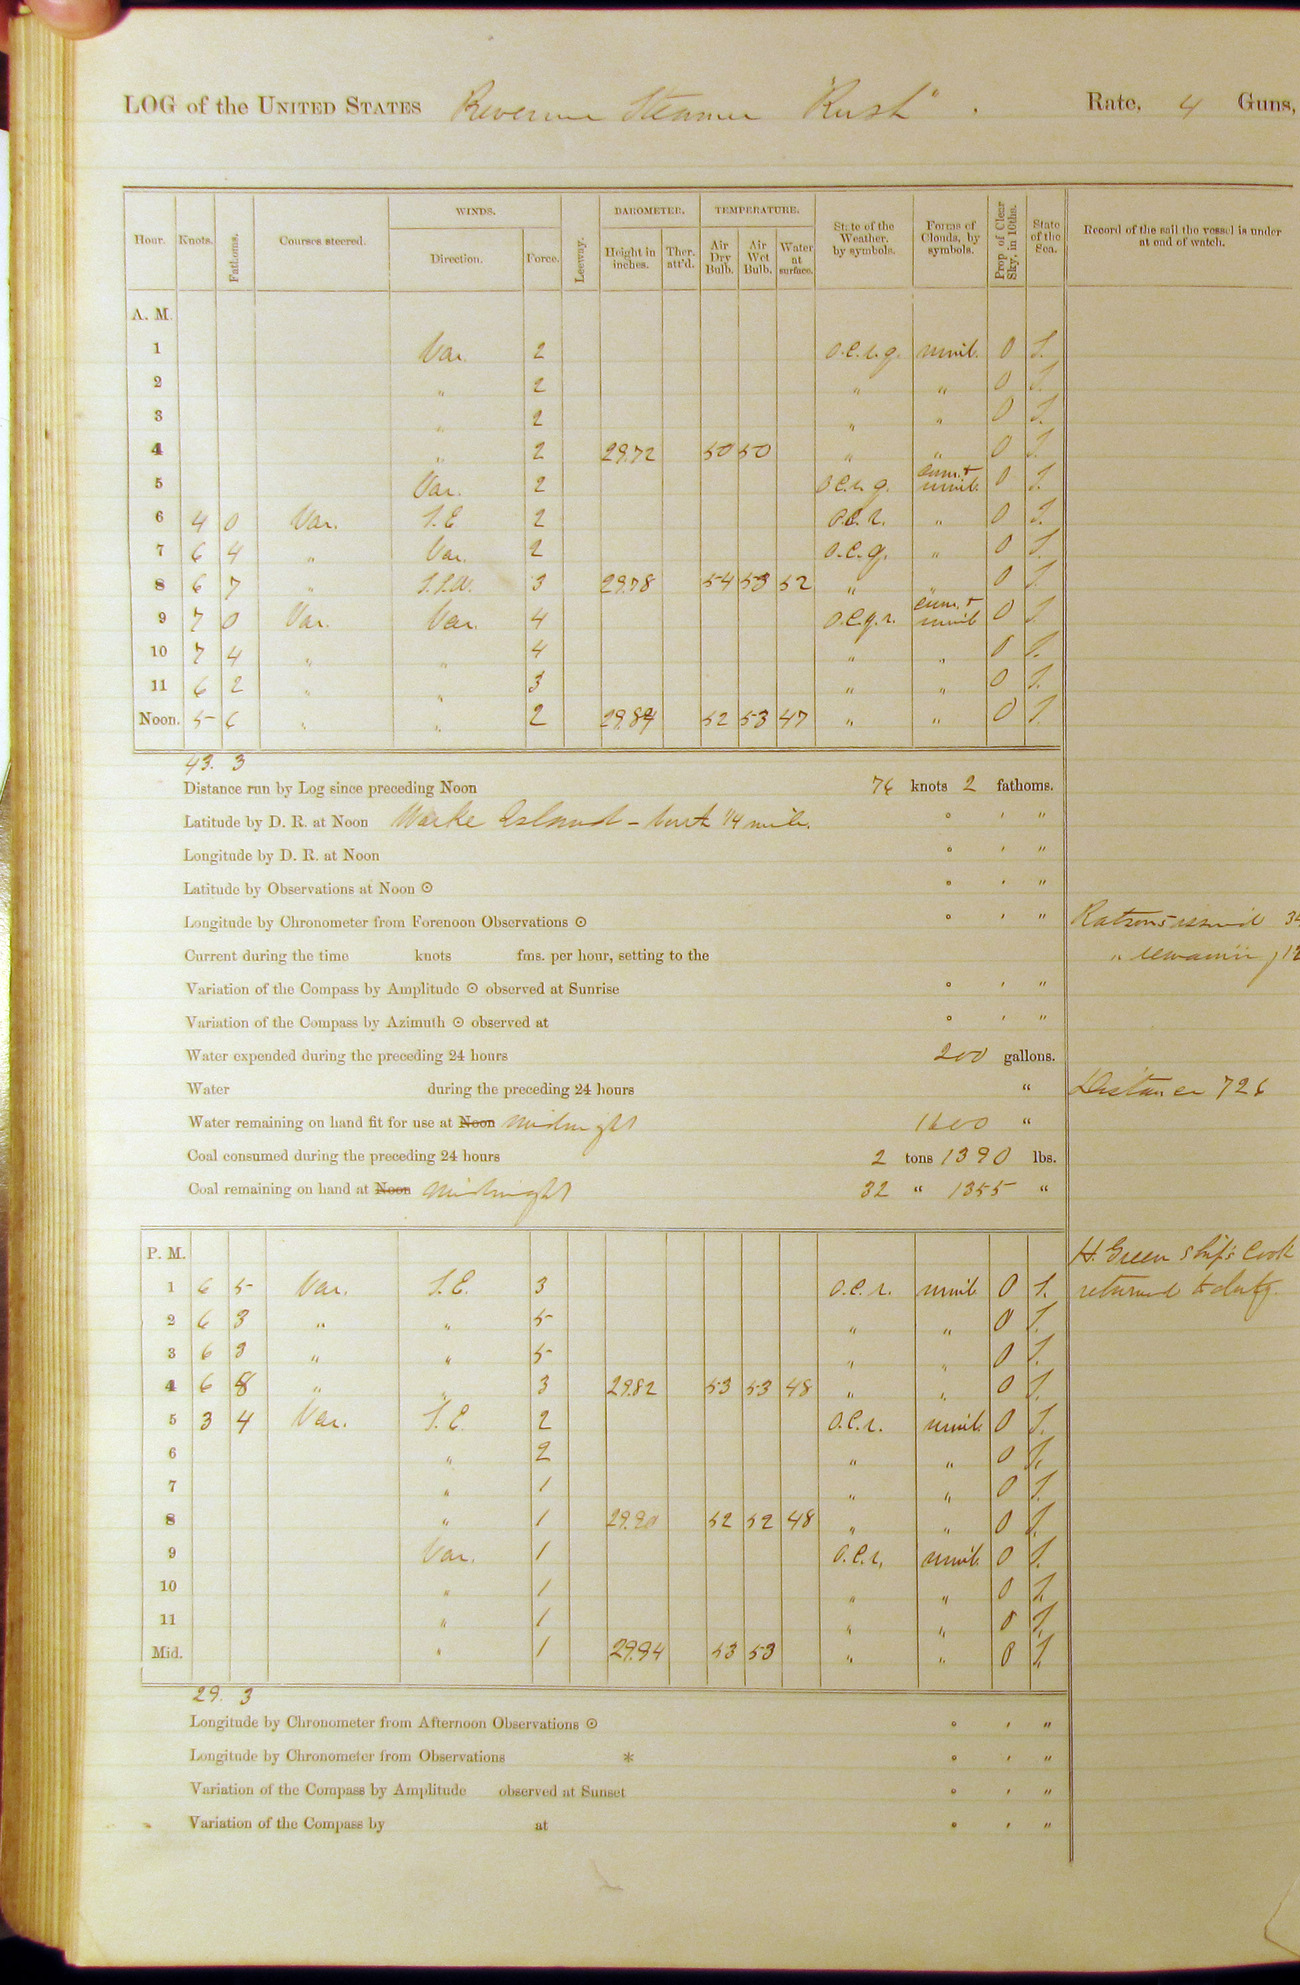 LOG of the UNITED STATES Revenue Steamer "Rush". Rate, 4 Guns,
Hour. Knots. Fathoms. Courses steered. WINDS. Direction. Force. Leeway. BAROMETER. Height in inches. Ther. att'd. TEMPERATURE. Air Dry Bulb. Air Wet Bulb. Water at surface. State of the Weather, by symbols. Forms of Clouds, by symbols. Prop. of Clear Sky, in 10ths. State of the Sea. Record of the sail the vessel is under at end of watch.
A. M.
1 Var. 2 o.c.r.g. nimb. 0 S.
2 " 2 " " 0 S.
3 " 2 " " 0 S.
4 " 2 29.72 50 50 " " 0 S.
5 Var. 2 o.c.r.g. cum. + nimb. 0 S.
6 4 0 Var. S.E 2 o.c.r. " 0 S.
7 6 4 " Var. 2 o.c.g. " 0 S.
8 6 7 " S.S.W. 3 29.78 54 53 52 " " 0 S.
9 7 0 Var. Var. 4 o.c.g.r. cum. + nimb 0 S.
10 7 4 " " 4 " " 0 S.
11 6 2 " " 3 " " 0 S.
Noon. 5 6 " " 2 29.84 52 53 47 " " 0 S.
43. 3
Distance run by Log since preceding Noon 76 knots 2 fathoms.
Latitude by D. R. at Noon Island - 1/4 mile. ° ′ ″
Longitude by D. R. at Noon ° ′ ″
Latitude by Observations at Noon ⊙ ° ′ ″
Longitude by Chronometer from Forenoon Observations ⊙ ° ′ ″ Rations issued 34
Current during the time knots fms. per hour, setting to the " 12
Variation of the Compass by Amplitude ⊙ observed at Sunrise ° ′ ″
Variation of the Compass by Azimuth ⊙ observed at ° ′ ″
Water expended during the preceding 24 hours 200 gallons.
Water during the preceding 24 hours " Distance 726
Water remaining on hand fit for use at Noon Midnight 1600 "
Coal consumed during the preceding 24 hours 2 tons 1390 lbs.
Coal remaining on hand at Noon Midnight 32 " 1355 "
P. M. H. Green ship's Cook
1 6 5 Var. S.E. 3 o.c.r. nimb 0 S. returned to duty.
2 6 3 " " 5 " " 0 S.
3 6 3 " " 5 " " 0 S.
4 6 8 " " 3 29.82 53 53 48 " " 0 S.
5 3 4 Var. S.E. 2 o.c.r. nimb. 0 S.
6 " 2 " " 0 S.
7 " 1 " " 0 S.
8 " 1 29.90 52 52 48 " " 0 S.
9 Var. 1 o.c.r. nimb. 0 S.
10 " 1 " " 0 S.
11 " 1 " " 0 S.
Mid. " 1 29.94 53 53 " " 0 S.
29. 3
Longitude by Chronometer from Afternoon Observations ⊙ ° ′ ″
Longitude by Chronometer from Observations * ° ′ ″
Variation of the Compass by Amplitude observed at Sunset ° ′ ″
Variation of the Compass by at ° ′ ″